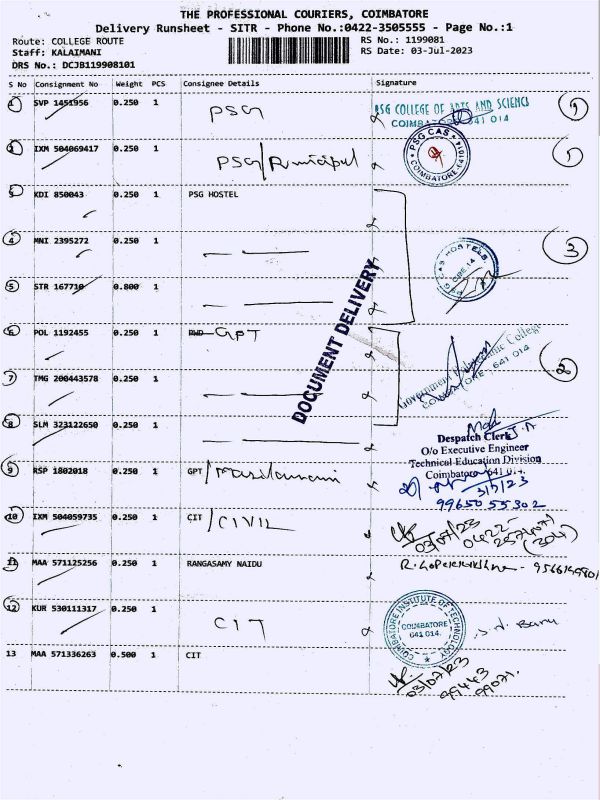 THE PROFESSIONAL COURIERS, COIMBATORE
Delivery Runsheet - SITR - Phone No.:0422-3505555 - Page No.:1
Route: COLLEGE ROUTE
RS No.: 1199081
Staff: KALAIMANI
RS Date: 03-Jul-2023
DRS No.: DCJB119908101
S No Consignment No Weight PCS Consignee Details Signature
1 SVP 1451956 0.250 1 PSG
PSG COLLEGE OF ARTS AND SCIENCE
COIMBATORE 641 014
2 IXM 504069417 0.250 1 PSG/
PSG CAS COIMBATORE 641014
1
3 KDI 850043 0.250 1 PSG HOSTEL
4 MNI 2395272 0.250 1
PSG CAS HOSTELS
CBE 14
3
5 STR 167710 0.800 1
DOCUMENT DELIVERY
6 POL 1192455 0.250 1 GPT
Government Polytechnic College
COIMBATORE, 641 014
2
7 TMG 200443578 0.250 1
8 SLM 323122650 0.250 1
Despatch Clerk
O/o Executive Engineer
Technical Education Division
Coimbatore 641 014.
9 RSP 1802018 0.250 1 GPT/
3/7/23
99650 55302
10 IXM 504059735 0.250 1 CIT /CIVIL
03/07/23
0422-
2574071
(304)
11 MAA 571125256 0.250 1 RANGASAMY NAIDU
12 KUR 530111317 0.250 1 CIT
COIMBATORE INSTITUTE OF TECHNOLOGY
COIMBATORE
641 014.
13 MAA 571336263 0.500 1 CIT
03/07/23
99443
99071